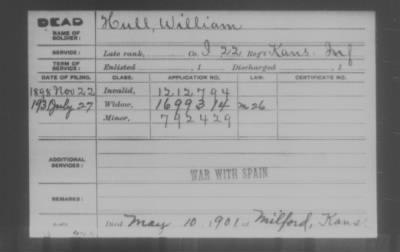 DEAD Hull, William
NAME OF SOLDIER:
SERVICE: Late rank, Co. I 22 Reg't Kans. Inf
TERM OF SERVICE: Enlisted , 1 Discharged , 1
DATE OF FILING. CLASS. APPLICATION NO. LAW. CERTIFICATE NO.
1898 Nov 22 Invalid, 1212794
193 July 27 Widow, 1699314 m 26
Minor, 792429
ADDITIONAL SERVICES:
WAR WITH SPAIN
REMARKS:
Died May 10, 1901 at Milford, Kans.